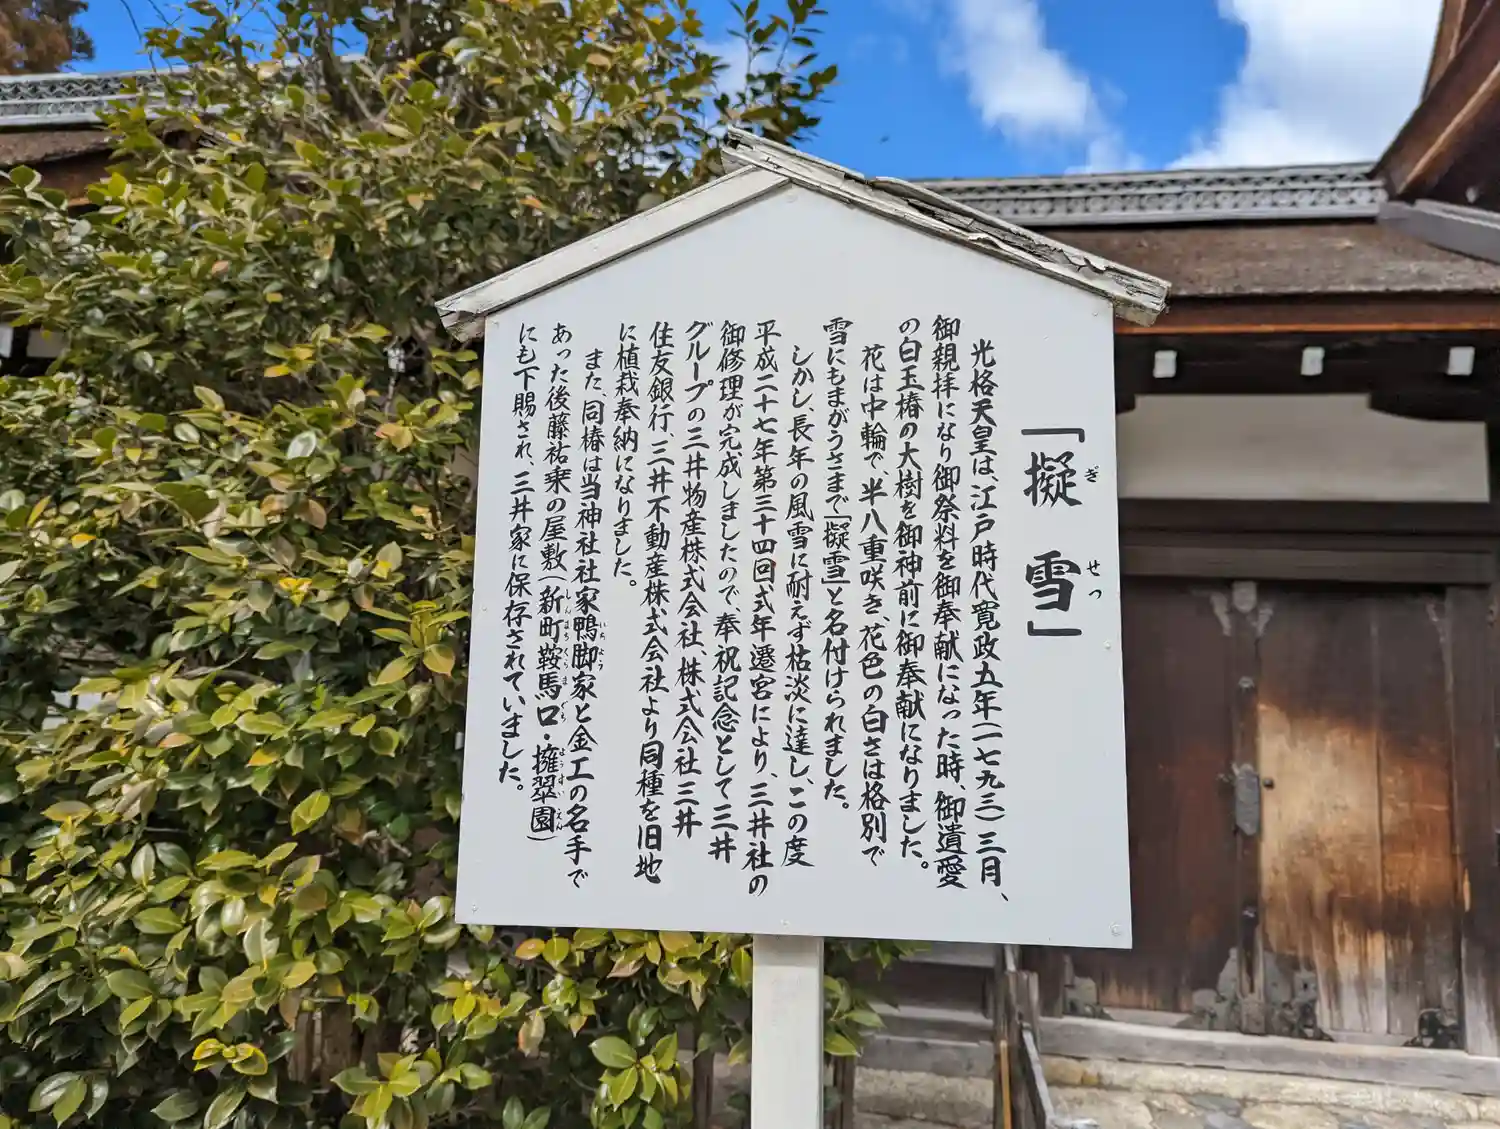 「擬雪」
ぎせつ
光格天皇は、江戸時代寛政五年(一七九三)三月、
御親拝になり御祭料を御奉献になった時、御遺愛
の白玉椿の大樹を御神前に御奉献になりました。
花は中輪で、半八重咲き、花色の白さは格別で
雪にもまがうさまで「擬雪」と名付けられました。
しかし、長年の風雪に耐えず枯淡に達し、この度
平成二十七年第三十四回式年遷宮により、三井社の
御修理が完成しましたので、奉祝記念として三井
グループの三井物産株式会社、株式会社三井
住友銀行、三井不動産株式会社より同種を旧地
に植栽奉納になりました。
また、同椿は当神社社家鴨脚家と金工の名手で
いちょう
あった後藤祐乗の屋敷(新町鞍馬口・擁翠園)
しんまちくらまぐち ようすいえん
にも下賜され、三井家に保存されていました。